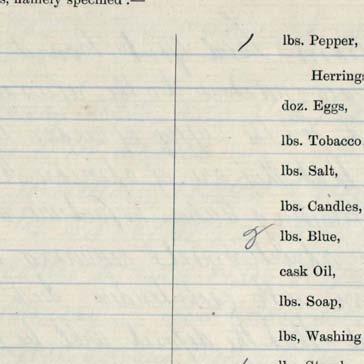 namely specified :—
lbs. Pepper,
Herrings
doz. Eggs,
lbs. Tobacco
lbs. Salt,
lbs. Candles,
lbs. Blue,
cask Oil,
lbs. Soap,
lbs, Washing